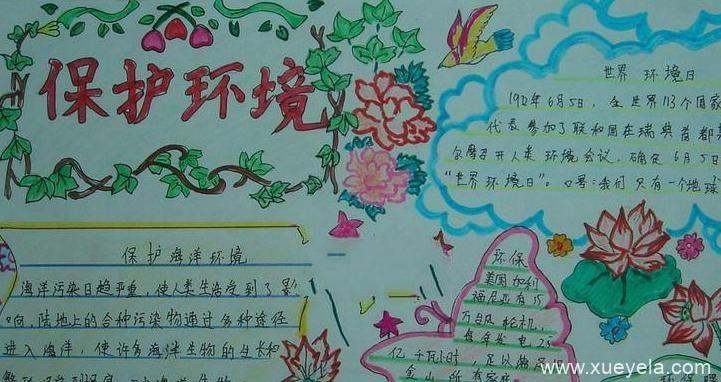 保护环境
世界 环境日
1972年6月5日，全世界113个国家
代表参加了联和国在瑞典首都
尔摩召开人类环境会议，确定6月5日
“世界环境日”。口号：我们只有一个地球
保护海洋环境
海洋污染日趋严重，使人类生活受到了影
响，陆地上的各种污染物通过多种途径
进入海洋，使许多海洋生物的生长和
环保
美国加利
福尼亚有15
万台风轮机，
每年发电25
亿千瓦小时，足以
金山所有家庭
www.xueyela.com